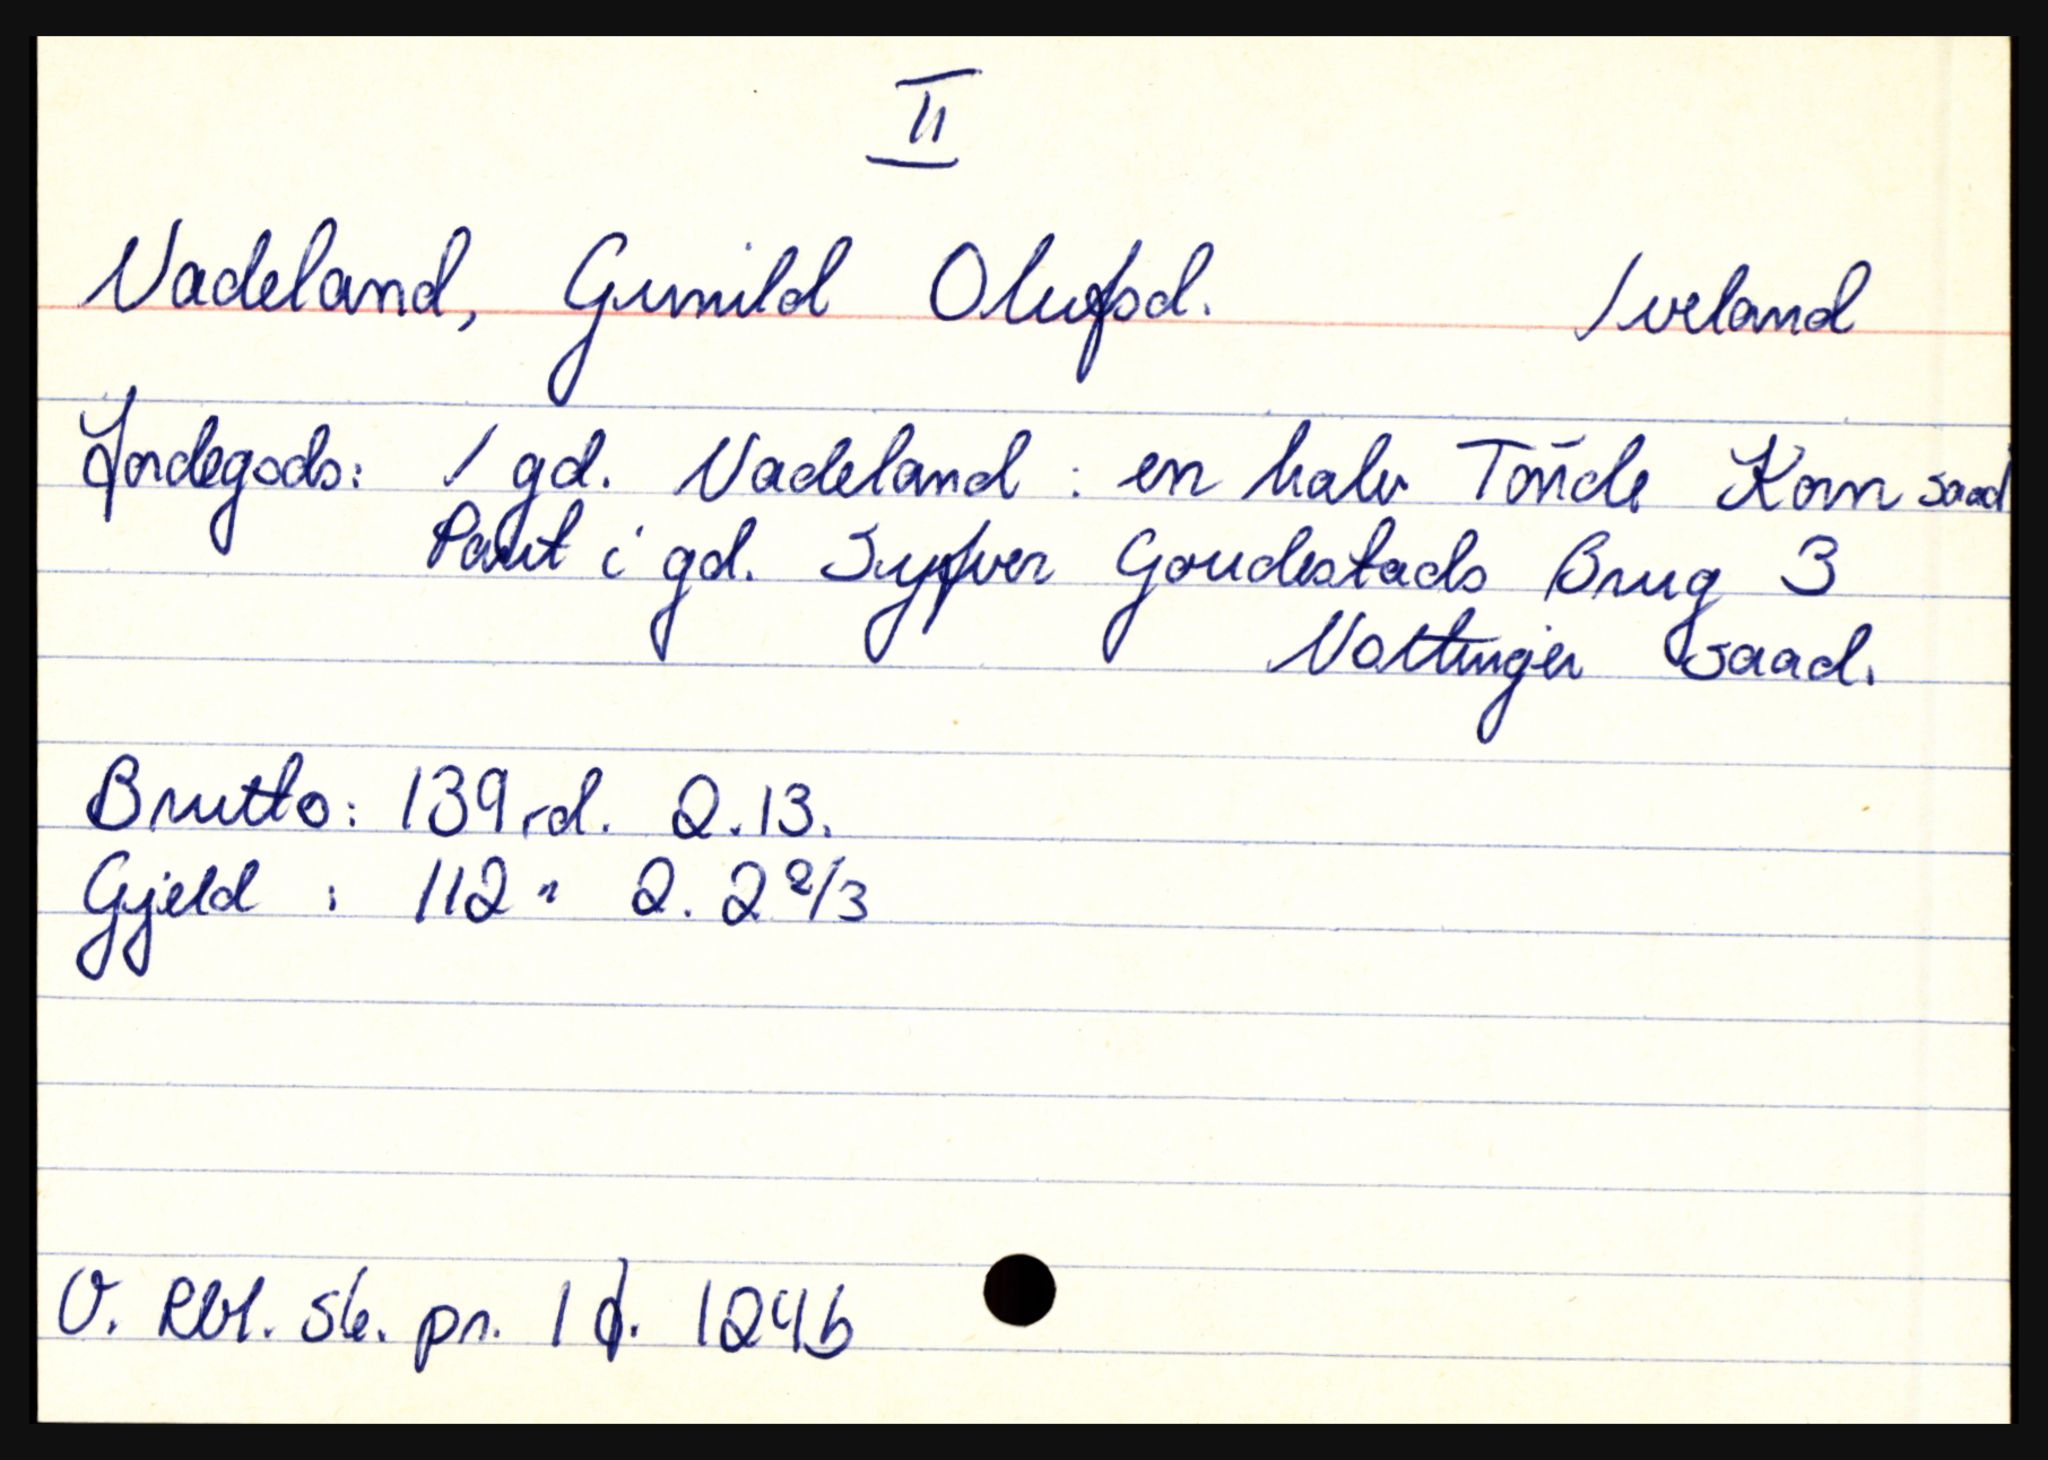 II
Vadeland, Gunild Olufsd. Iveland
Jordegods: 1 gd. Vadeland : en halv Tönde Korn saad
Part i gd. Syfver Goudestads Brug 3
Vottinger saad.
Brutto: 139 rd. 2.13.
Gjeld : 112 " 2. 2 2/3
V. Rbl. sk. pr. 1 124b